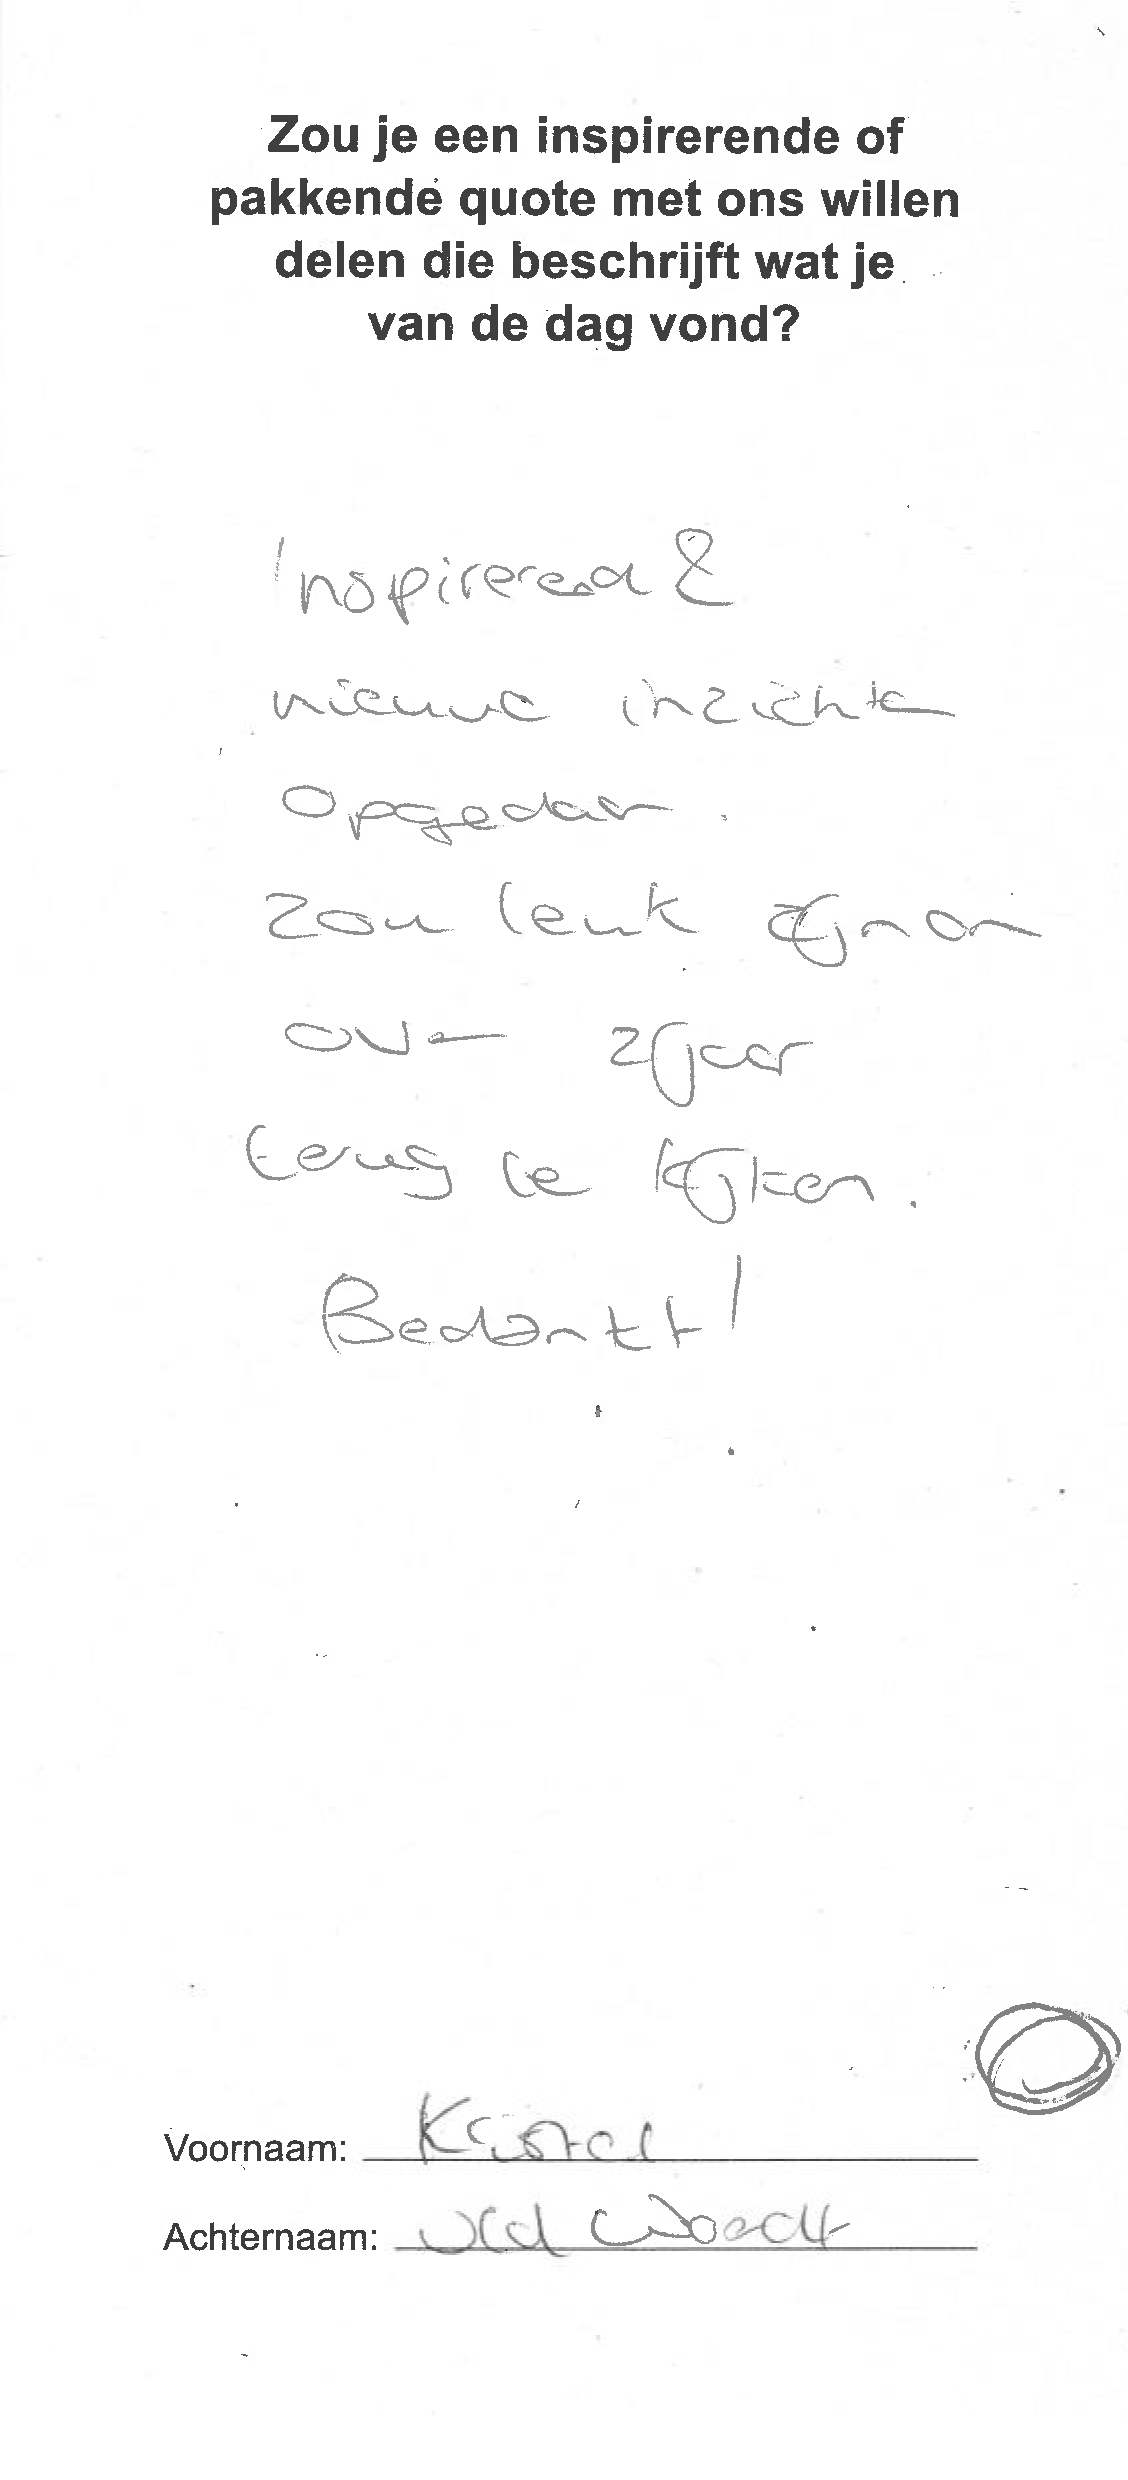 Zou je een inspirerende of
pakkende quote met ons willen
delen die beschrijft wat je
van de dag vond?
Inspirerend &
nieuwe inzichten
opgedaan.
Zou leuk zijn om
over jaar
terug te kijken.
Bedankt!
Voornaam: Kristel
Achternaam: vld